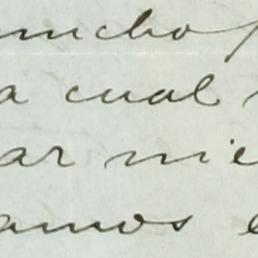 mucho
a cual
ar mie
amos e